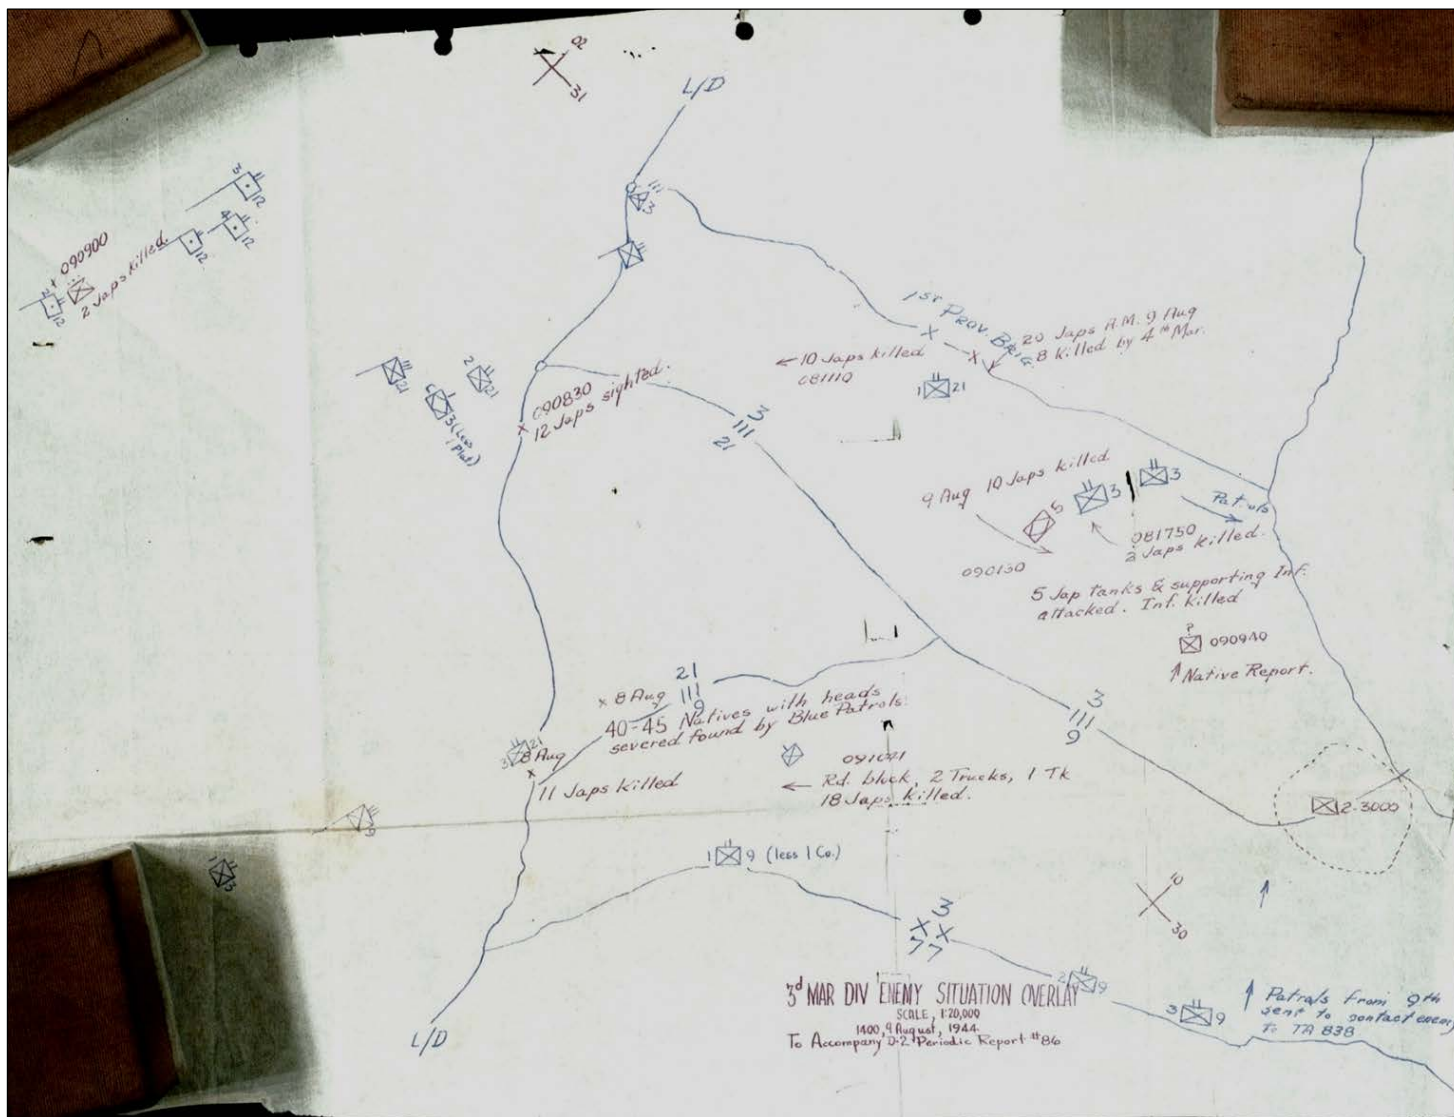 02
31
L/D
3
12
4
12
12
090900
2 Japs killed.
2
12
III
3
1st Prov. Brig.
20 Japs A.M. 9 Aug
8 Killed by 4th Mar.
← 10 Japs killed
081110
1 21
21
2
21
C
3 (Less
1 Plat)
090830
12 Japs sighted.
3
III
21
9 Aug 10 Japs killed
5
3
3
Patrols
081750
Japs killed.
090130
5 Jap tanks & supporting Inf.
attacked. Inf. killed
?
090940
↑ Native Report.
21
III
9
x 8 Aug
40-45 Natives with heads
severed found by Blue Patrols.
3
III
9
3 21
8 Aug
11 Japs Killed
← Rd. block, 2 Trucks, 1 Tk
18 Japs killed.
2-3000
9
1
3
1 9 (less 1 Co.)
10
30
3
X X
77
2 9
3 9
↑ Patrols from 9th
sent to contact enemy
To TA 838
L/D
3d MAR DIV ENEMY SITUATION OVERLAY
SCALE, 1:20,000
1400, 9 August, 1944
To Accompany D-2 Periodic Report #86